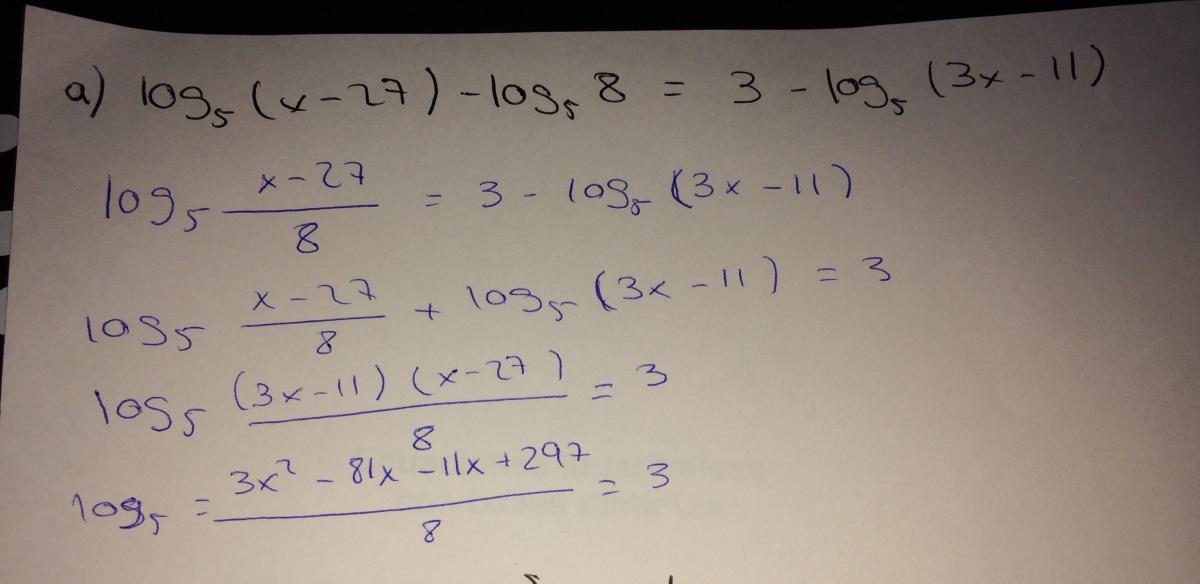 a) log₅ (x-27) - log₅ 8 = 3 - log₅ (3x-11)
log₅ (x-27)/8 = 3 - log₅ (3x-11)
log₅ (x-27)/8 + log₅ (3x-11) = 3
log₅ (3x-11)(x-27)/8 = 3
log₅ = (3x² - 81x - 11x + 297)/8 = 3